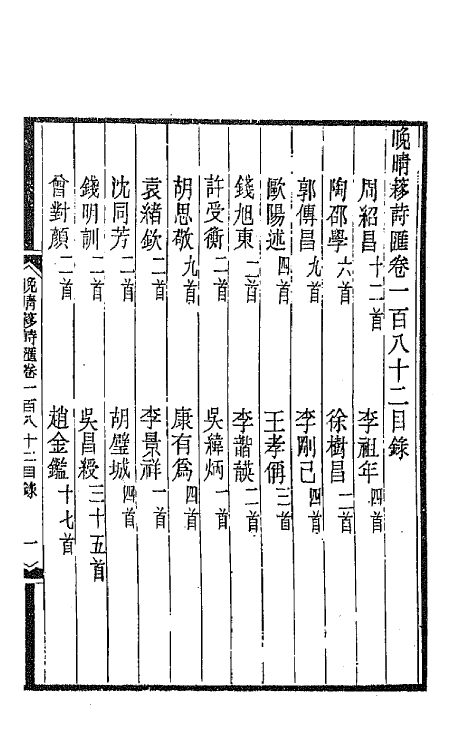 晚晴簃詩匯卷一百八十二目錄
周紹昌十二首 李祖年四首
陶邵學六首 徐樹昌二首
郭傳昌九首 李剛己四首
歐陽述四首 王孝偁三首
錢旭東二首 李諧韺二首
許受衡二首 吳緯炳一首
胡思敬九首 康有為四首
袁緒欽二首 李景祥一首
沈同芳二首 胡璧城四首
錢明訓二首 吳昌綬三十五首
曾對顏二首 趙金鑑十七首
晚晴簃詩匯卷一百八十二目錄 一